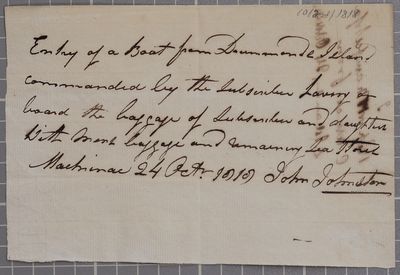 10/24/1818
Entry of a Boat from Drummonds Island
commanded by the Subscriber having on
board the baggage of Subscriber and daughter
With baggage and remaining Sea Stores
Mackinac 24 Octr. 1818 John Johnston